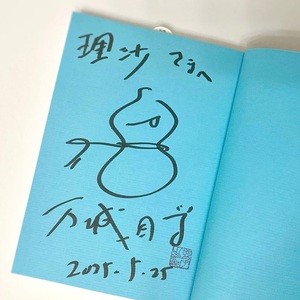 理沙さまへ
万城目学
2025.5.25